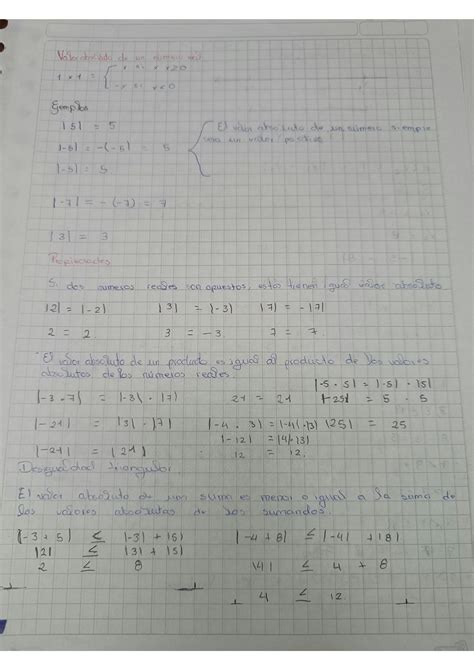 Valor absoluto de un número real
|x| = { x si x ≥ 0
-x si x < 0
Ejemplos
|5| = 5
|-5| = -(-5) = 5
|-5| = 5
El valor absoluto de un número siempre
sera un valor positivo
|-7| = -(-7) = 7
|3| = 3
Propiedades
Si dos numeros reales son opuestos, estos tienen igual valor absoluto
|2| = |-2| |3| = |-3| |7| = -|7|
2 = 2 3 = -3 7 = 7
El valor absoluto de un producto es igual al producto de los valores
absolutos de los números reales.
|-5 · 5| = |-5| · |5|
|-3 · 7| = |-3| · |7| 21 = 21 |-25| = 5 · 5
|-21| = |3| · |7| |-4 · 3| = |-4| · |3| |25| = 25
|-12| = |4| · |3|
|-21| = |21| 12 = 12
Desigualdad triangular
El valor absoluto de um suma es menor o igual a la suma de
los valores absolutos de los sumandos.
|-3 + 5| ≤ |-3| + |5| |-4 + 8| ≤ |-4| + |8|
|2| ≤ |3| + |5|
2 ≤ 8 |4| ≤ 4 + 8
4 ≤ 12